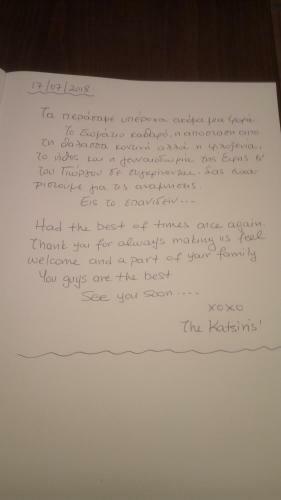 17/07/2018
Τα περάσαμε υπέροχα ακόμα μια φορά.
Το δωμάτιο καθαρό, η απόσταση από
τη θάλασσα κοντινή αλλά η φιλοξενία,
το ήθος και η γενναιοδωρία της Εφης κ'
του Γιώργου δε συγκρίνονται. Σας ευχα-
ριστούμε για τις αναμνήσεις.
Εις το επανιδείν...
Had the best of times once again.
Thank you for always making us feel
welcome and a part of your family
You guys are the best
See you soon....
xoxo
The Katsiris'